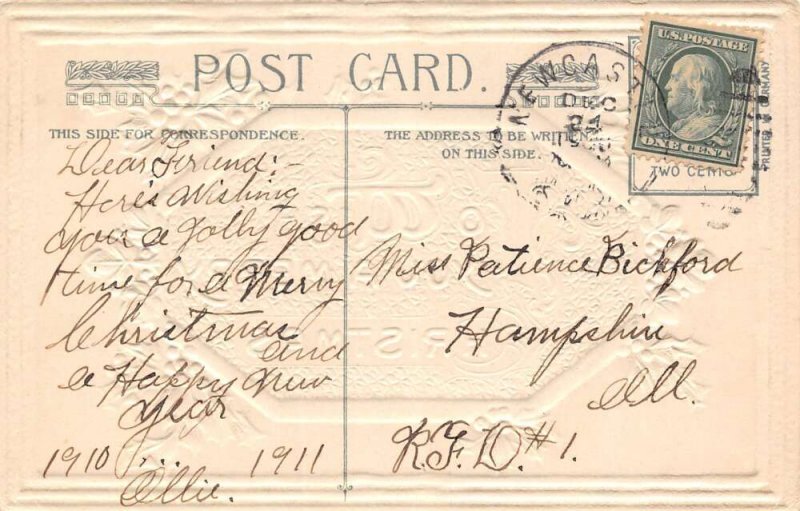 POST CARD.
THIS SIDE FOR CORRESPONDENCE.
THE ADDRESS TO BE WRITTEN
ON THIS SIDE.
NEWCAST
DEC
U.S. POSTAGE
ONE CENT
TWO CENTS
PRINTED IN GERMANY
Dear Friend:-
Here's Wishing
you a Jolly good
time for a Merry
Christmas
and
a Happy New
Year
1910 ... 1911
Ollie.
Miss Patience Bickford
Hampshire
Ill.
R.F.D. #1.